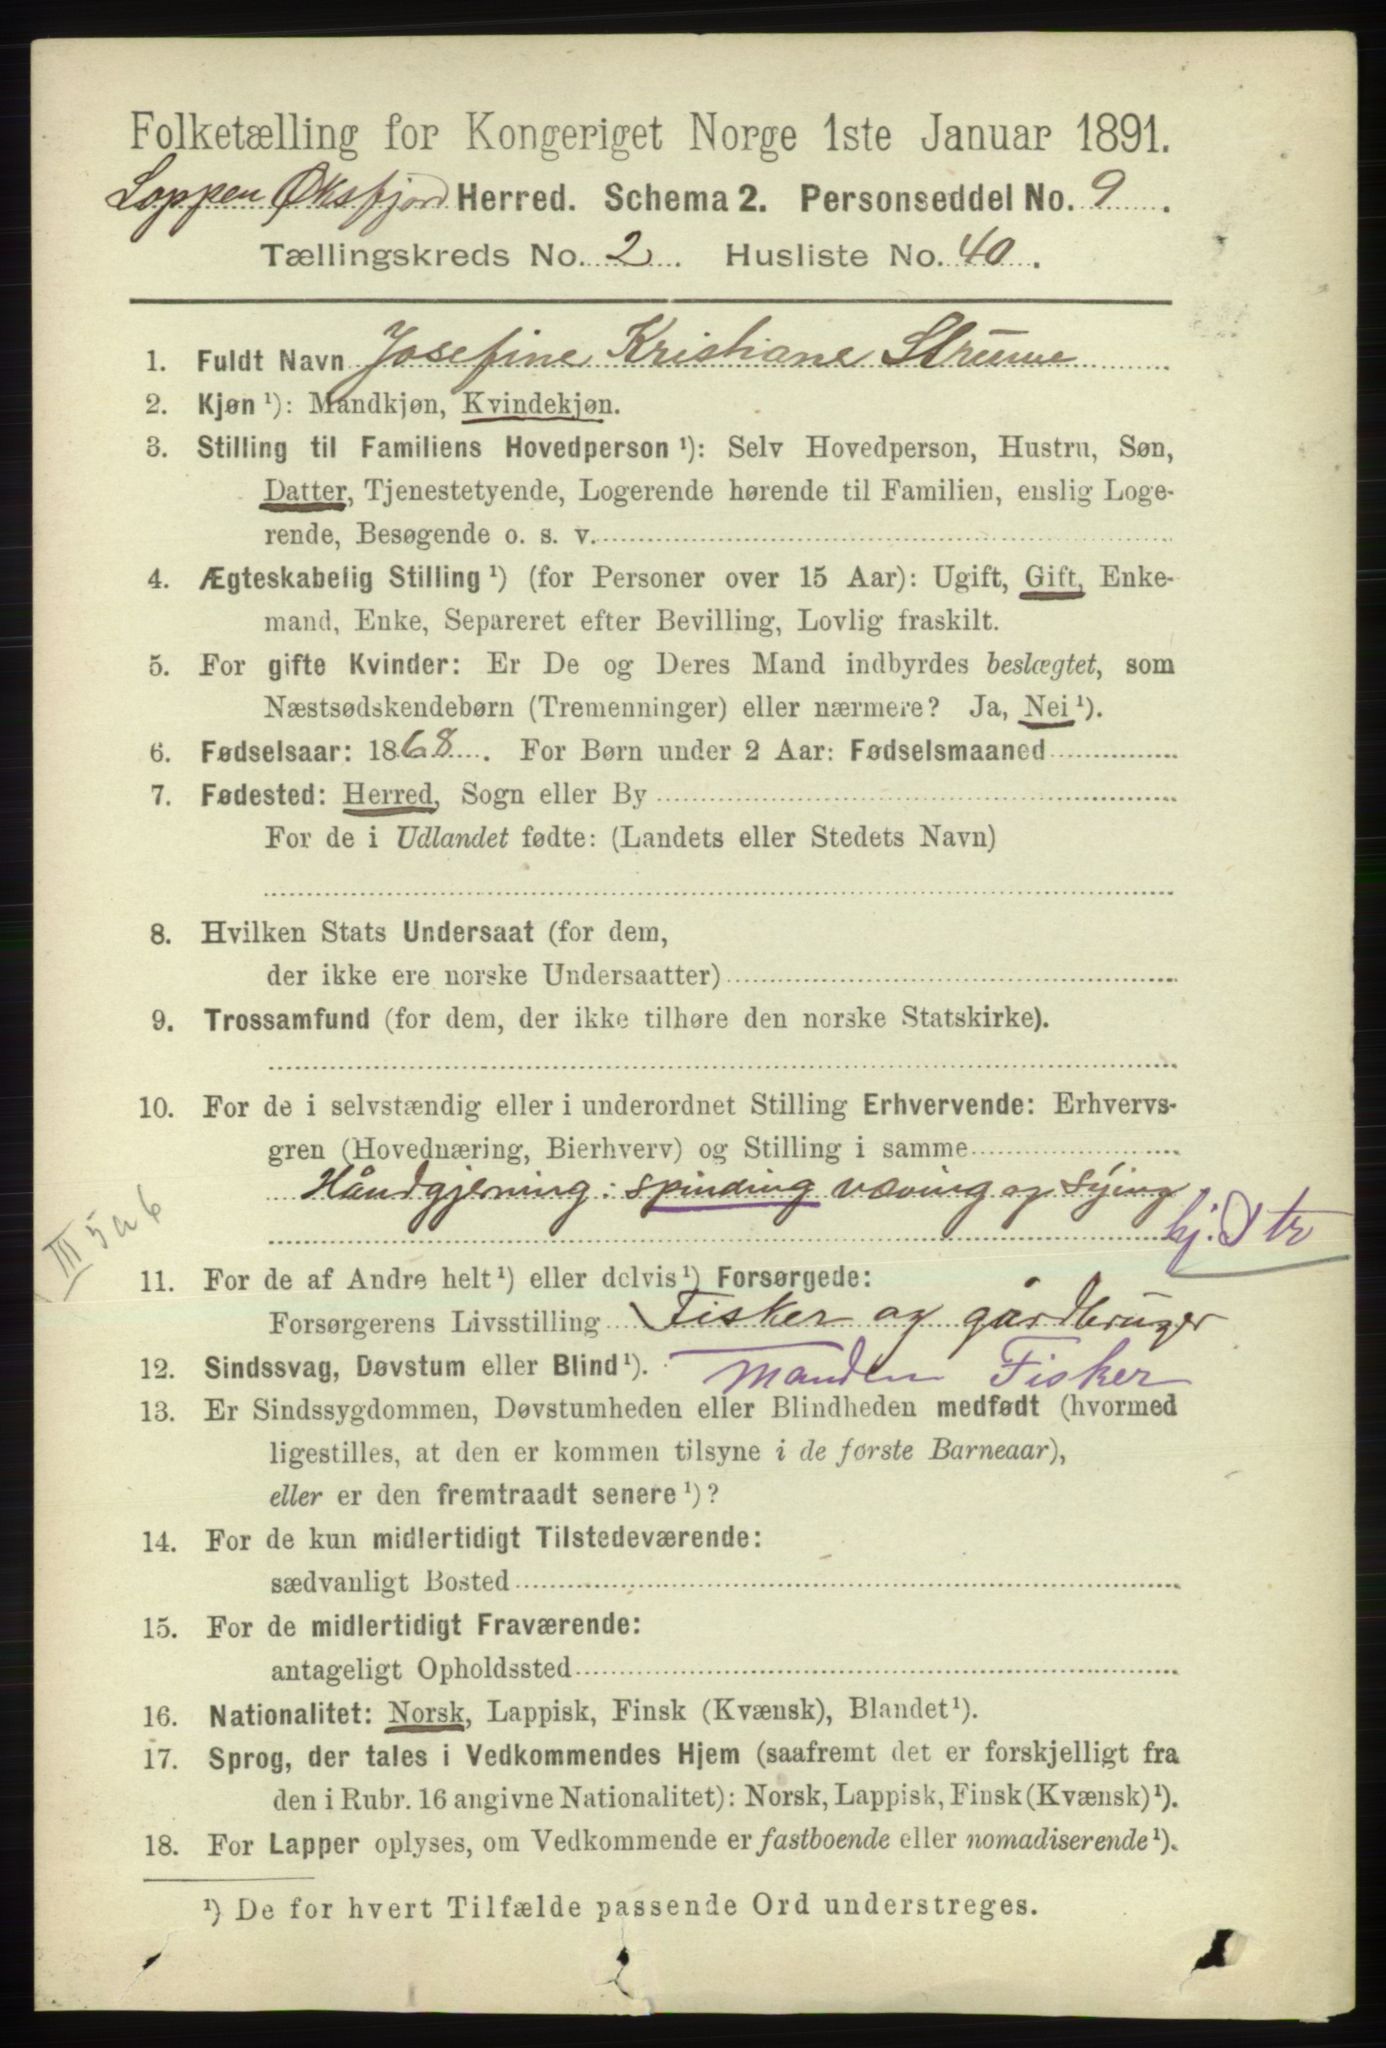 Folketælling for Kongeriget Norge 1ste Januar 1891.
Loppen Øksfjord Herred. Schema 2. Personseddel No. 9.
Tællingskreds No. 2. Husliste No. 40.
1. Fuldt Navn Josefine Kristiane Struwe
2. Kjøn ¹): Mandkjøn, Kvindekjøn.
3. Stilling til Familiens Hovedperson ¹): Selv Hovedperson, Hustru, Søn,
Datter, Tjenestetyende, Logerende hørende til Familien, enslig Loge-
rende, Besøgende o. s. v.
4. Ægteskabelig Stilling ¹) (for Personer over 15 Aar): Ugift, Gift, Enke-
mand, Enke, Separeret efter Bevilling, Lovlig fraskilt.
5. For gifte Kvinder: Er De og Deres Mand indbyrdes beslægtet, som
Næstsødskendebørn (Tremenninger) eller nærmere? Ja, Nei ¹).
6. Fødselsaar: 1868. For Børn under 2 Aar: Fødselsmaaned
7. Fødested: Herred, Sogn eller By
For de i Udlandet fødte: (Landets eller Stedets Navn)
8. Hvilken Stats Undersaat (for dem,
der ikke ere norske Undersaatter)
9. Trossamfund (for dem, der ikke tilhøre den norske Statskirke).
10. For de i selvstændig eller i underordnet Stilling Erhvervende: Erhvervs-
gren (Hovednæring, Bierhverv) og Stilling i samme
Håndgjerning: spinding væving og sying
hj. D tr
III 5 a b
11. For de af Andre helt ¹) eller delvis ¹) Forsørgede:
Forsørgerens Livsstilling Fisker og gårdbruger
12. Sindssvag, Døvstum eller Blind ¹). Manden Fisker
13. Er Sindssygdommen, Døvstumheden eller Blindheden medfødt (hvormed
ligestilles, at den er kommen tilsyne i de første Barneaar),
eller er den fremtraadt senere ¹)?
14. For de kun midlertidigt Tilstedeværende:
sædvanligt Bosted
15. For de midlertidigt Fraværende:
antageligt Opholdssted
16. Nationalitet: Norsk, Lappisk, Finsk (Kvænsk), Blandet ¹).
17. Sprog, der tales i Vedkommendes Hjem (saafremt det er forskjelligt fra
den i Rubr. 16 angivne Nationalitet): Norsk, Lappisk, Finsk (Kvænsk) ¹).
18. For Lapper oplyses, om Vedkommende er fastboende eller nomadiserende ¹).
¹) De for hvert Tilfælde passende Ord understreges.